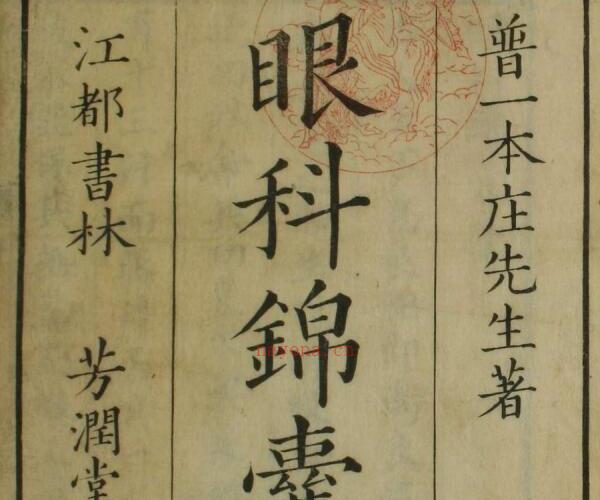 普一本庄先生著
眼科錦囊
江都書林 芳潤堂
nayona.cn